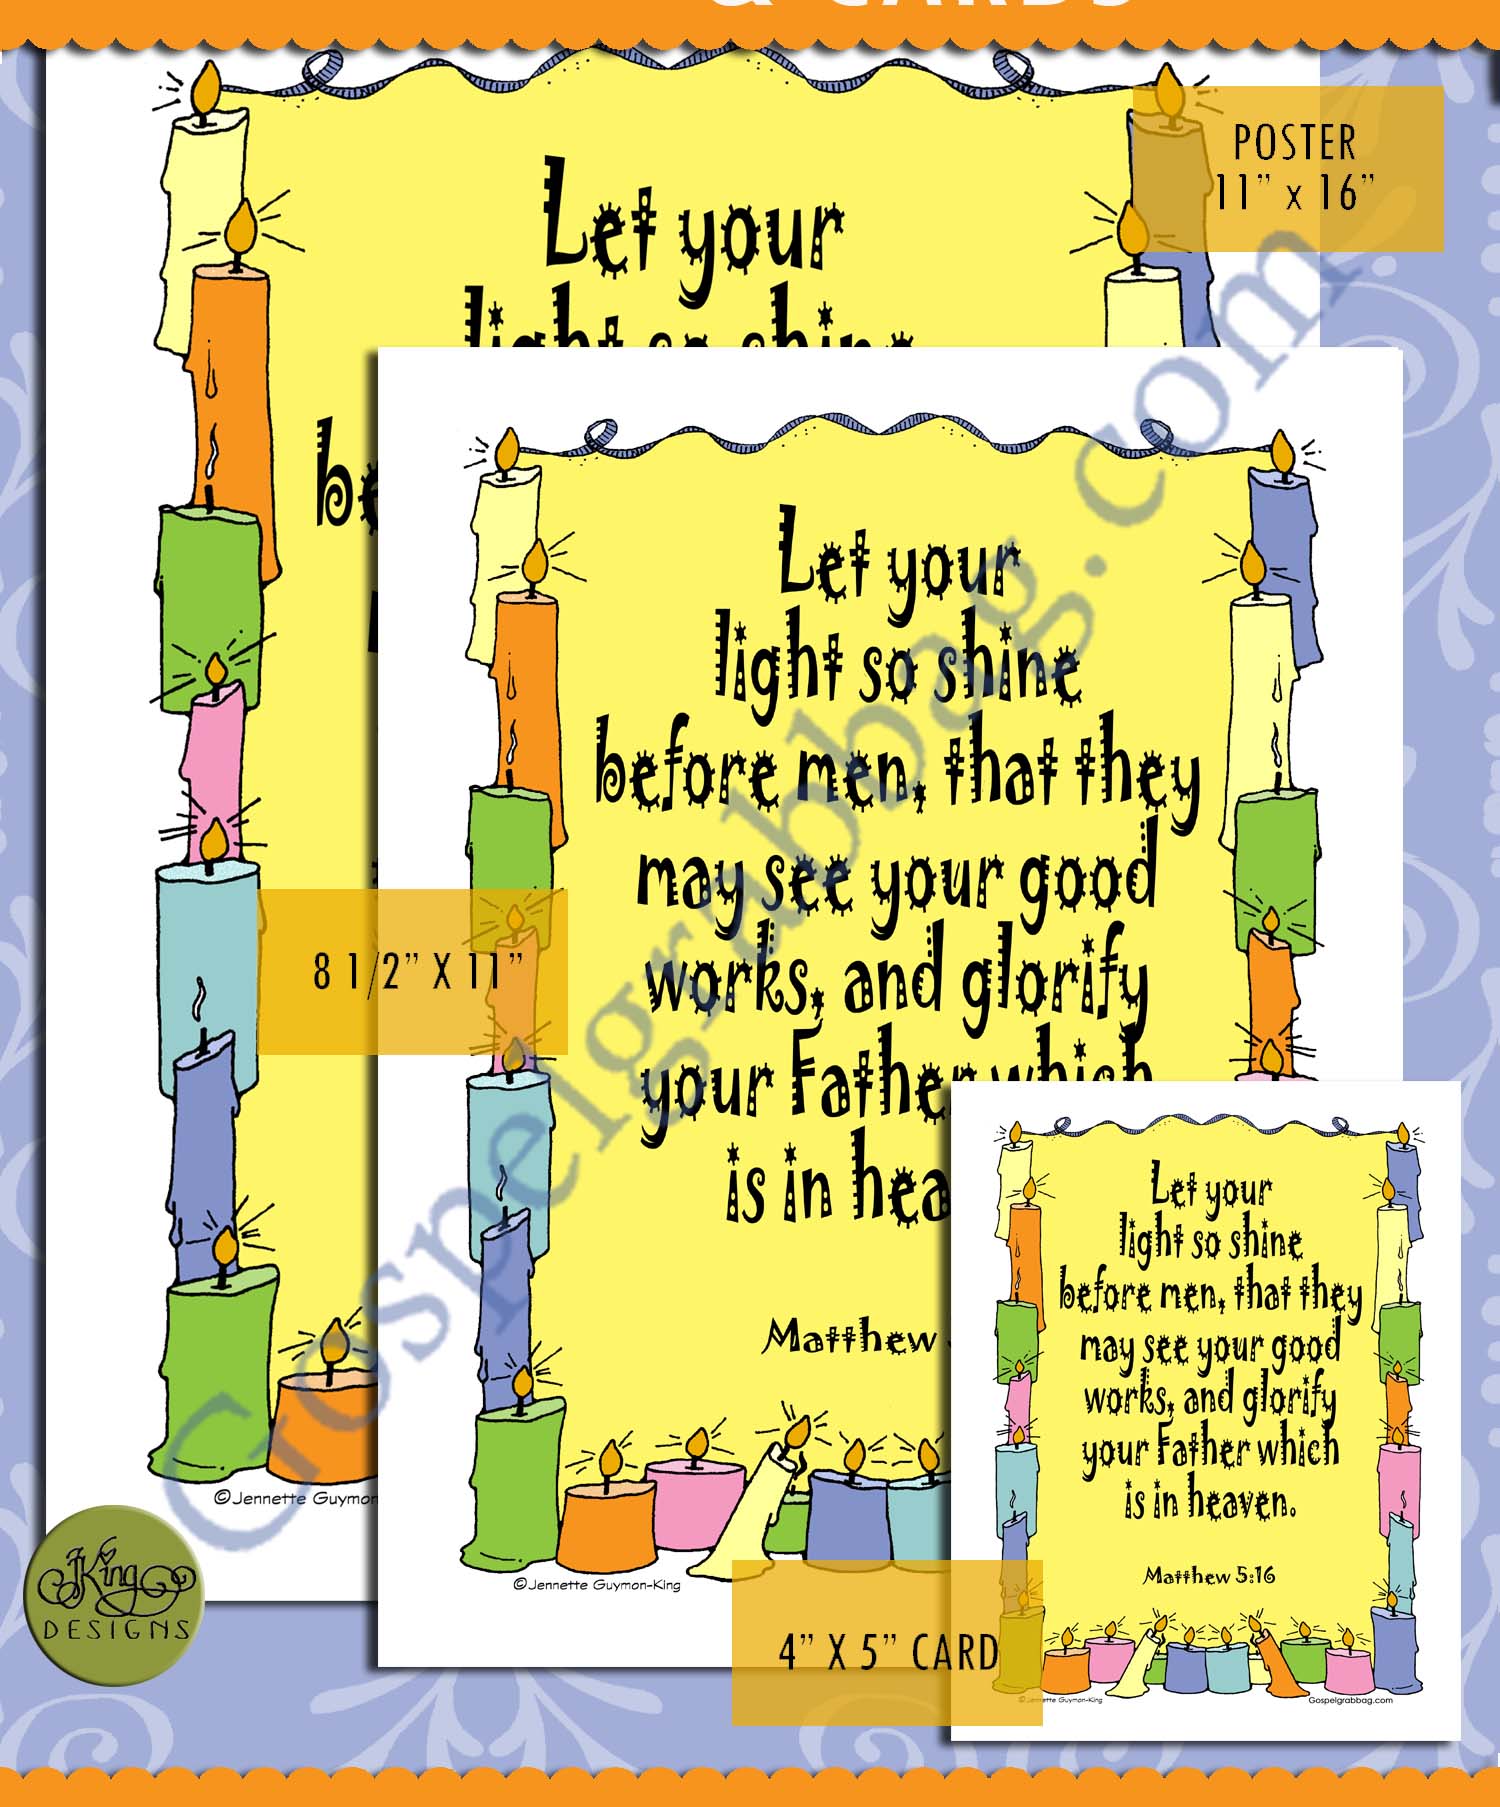 & CARDS
POSTER
11” x 16”
Let your
light so shine
be
©Jennette Guymon
8 1/2” X 11”
Let your
light so shine
before men, that they
may see your good
works, and glorify
your Father which
is in hea
Matthew
©Jennette Guymon-King
4” X 5” CARD
Let your
light so shine
before men, that they
may see your good
works, and glorify
your Father which
is in heaven.
Matthew 5:16
©Jennette Guymon-King
Gospelgrabbag.com
Gospelgrabbag.com
JKing
DESIGNS